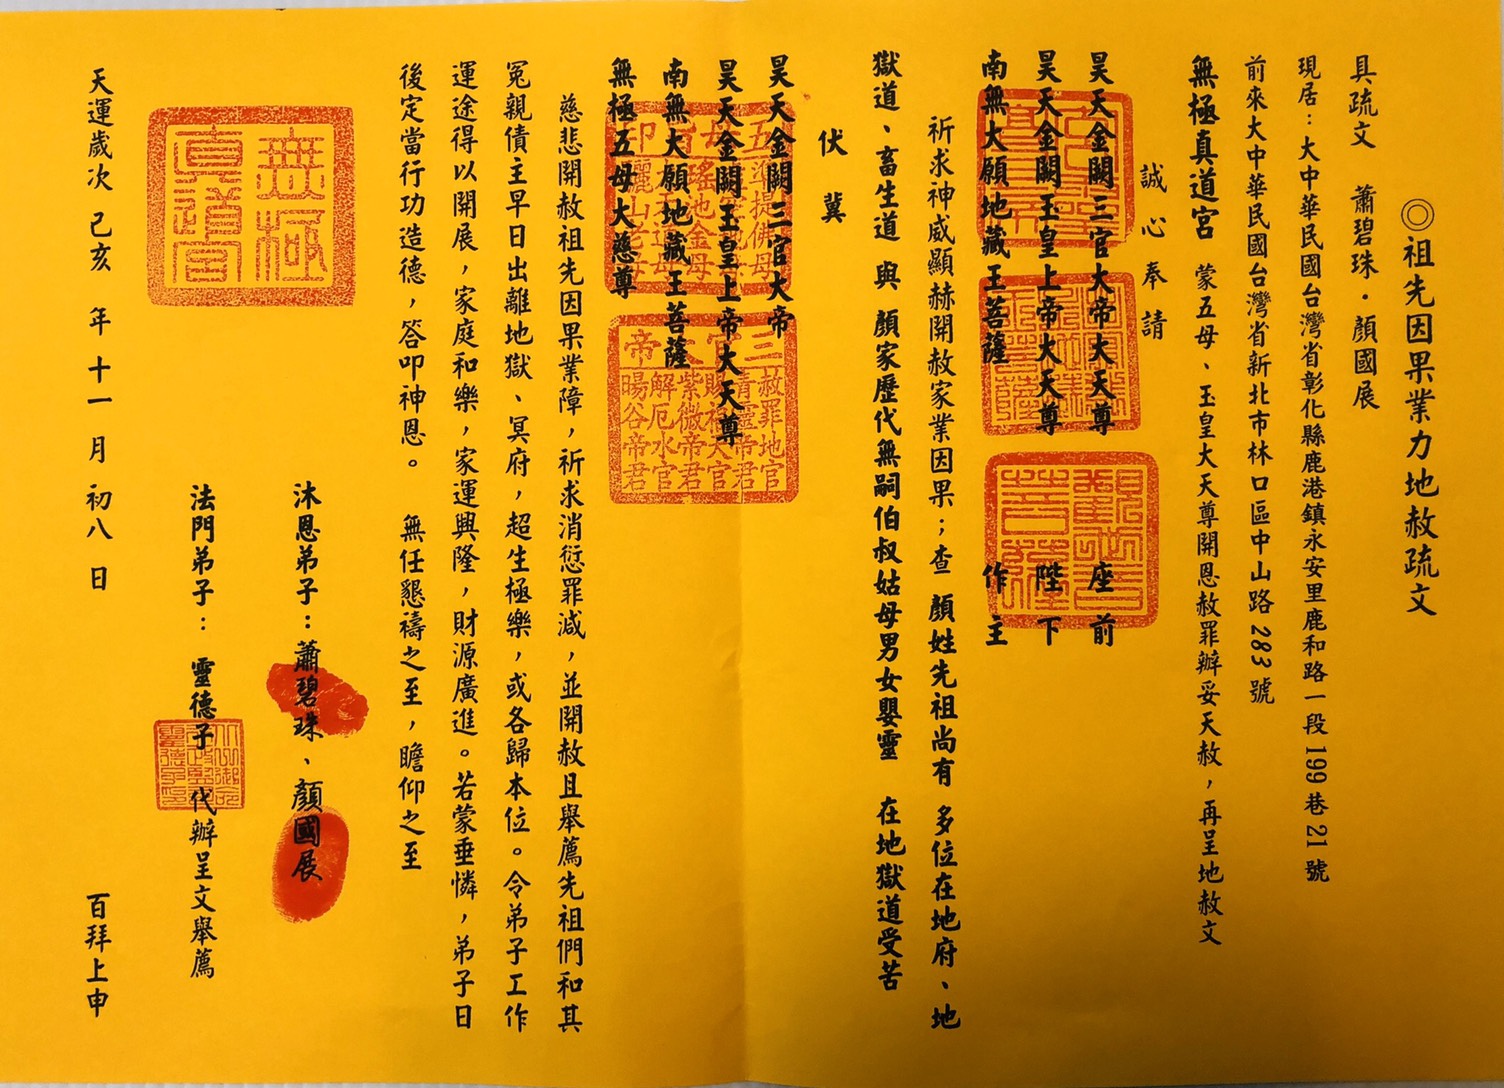 ◎祖先因果業力地赦疏文
具疏文　蕭碧珠．顏國展
現居：大中華民國台灣省彰化縣鹿港鎮永安里鹿和路一段 199 巷 21 號
前來大中華民國台灣省新北市林口區中山路 283 號
無極真道宮　蒙五母、玉皇大天尊開恩赦罪辦妥天赦，再呈地赦文
誠心奉請
昊天金闕三官大帝大天尊　座前
昊天金闕玉皇上帝大天尊　陛下
南無大願地藏王菩薩　作主
祈求神威顯赫開赦家業因果；查 顏姓先祖尚有 多位在地府、地
獄道、畜生道 與 顏家歷代無嗣伯叔姑母男女嬰靈　在地獄道受苦
伏冀
昊天金闕三官大帝
昊天金闕玉皇上帝大天尊
南無大願地藏王菩薩
無極五母大慈尊
慈悲開赦祖先因果業障，祈求消愆罪減，並開赦且舉薦先祖們和其
冤親債主早日出離地獄、冥府，超生極樂，或各歸本位。令弟子工作
運途得以開展，家庭和樂，家運興隆，財源廣進。若蒙垂憐，弟子日
後定當行功造德，答叩神恩。　無任懇禱之至，瞻仰之至
沐恩弟子：蕭碧珠、顏國展
法門弟子：　靈德子　代辦呈文舉薦
無極
真道宮
天運歲次 己亥　年 十一 月 初八 日　百拜上申